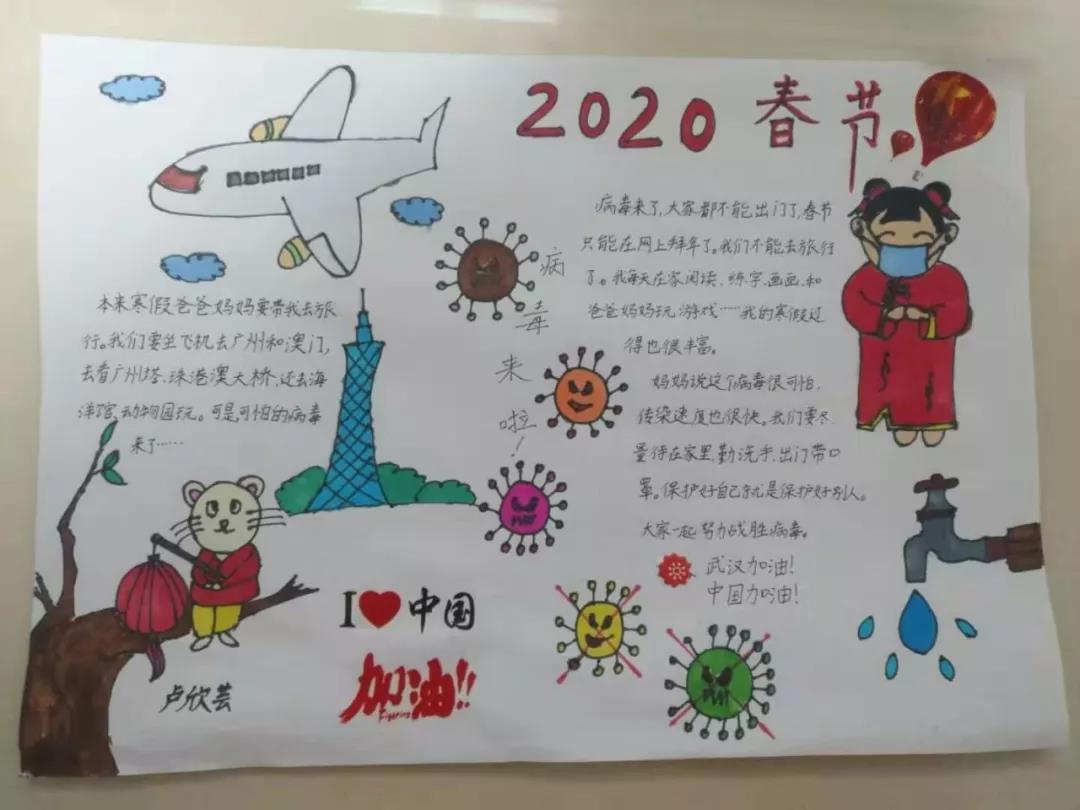 2020 春节
本来寒假爸爸妈妈要带我去旅
行。我们要坐飞机去广州和澳门,
去看广州塔、珠港澳大桥,还去海
洋馆、动物园玩。可是可怕的病毒
来了……
病毒来啦!
病毒来了,大家都不能出门了,春节
只能在网上拜年了。我们不能去旅行
了。我每天在家阅读、练字、画画、和
爸爸妈妈玩游戏……我的寒假过
得也很丰富。
妈妈说这个病毒很可怕,
传染速度也很快。我们要尽
量待在家里,勤洗手,出门带口
罩。保护好自己就是保护好别人。
大家一起努力战胜病毒。
武汉加油!
中国加油!
I❤中国
加油!!
Fighting
卢欣芸